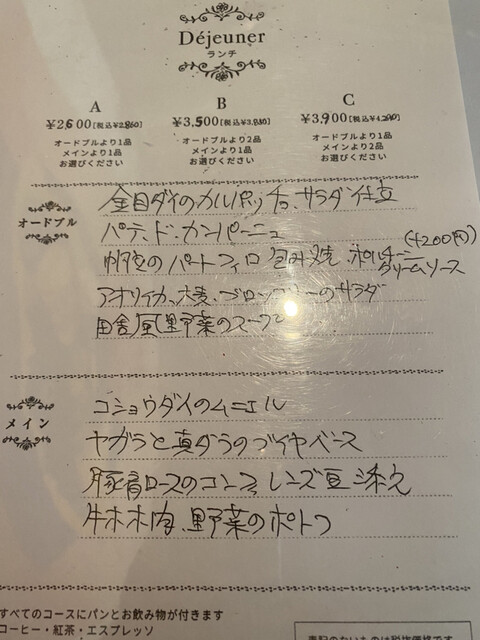 Déjeuner
ランチ
A
¥2,600[税込¥2,860]
オードブルより1品
メインより1品
お選びください
B
¥3,500[税込¥3,850]
オードブルより2品
メインより1品
お選びください
C
¥3,900[税込¥4,290]
オードブルより1品
メインより2品
お選びください
オードブル
金目ダイのカルパッチョ、サラダ仕立
パテ、ド、カンパーニュ
帆立のパートフィロ包み焼、ポルチーニクリームソース (+200円)
アオリイカ、大麦、ブロッコリーのサラダ
田舎風野菜のスープ
メイン
コショウダイのムニエル
ヤガラと真ダラのブイヤベース
豚肩ロースのコンフィ レンズ豆添え
牛ホホ肉、野菜のポトフ
すべてのコースにパンとお飲み物が付きます
コーヒー・紅茶・エスプレッソ